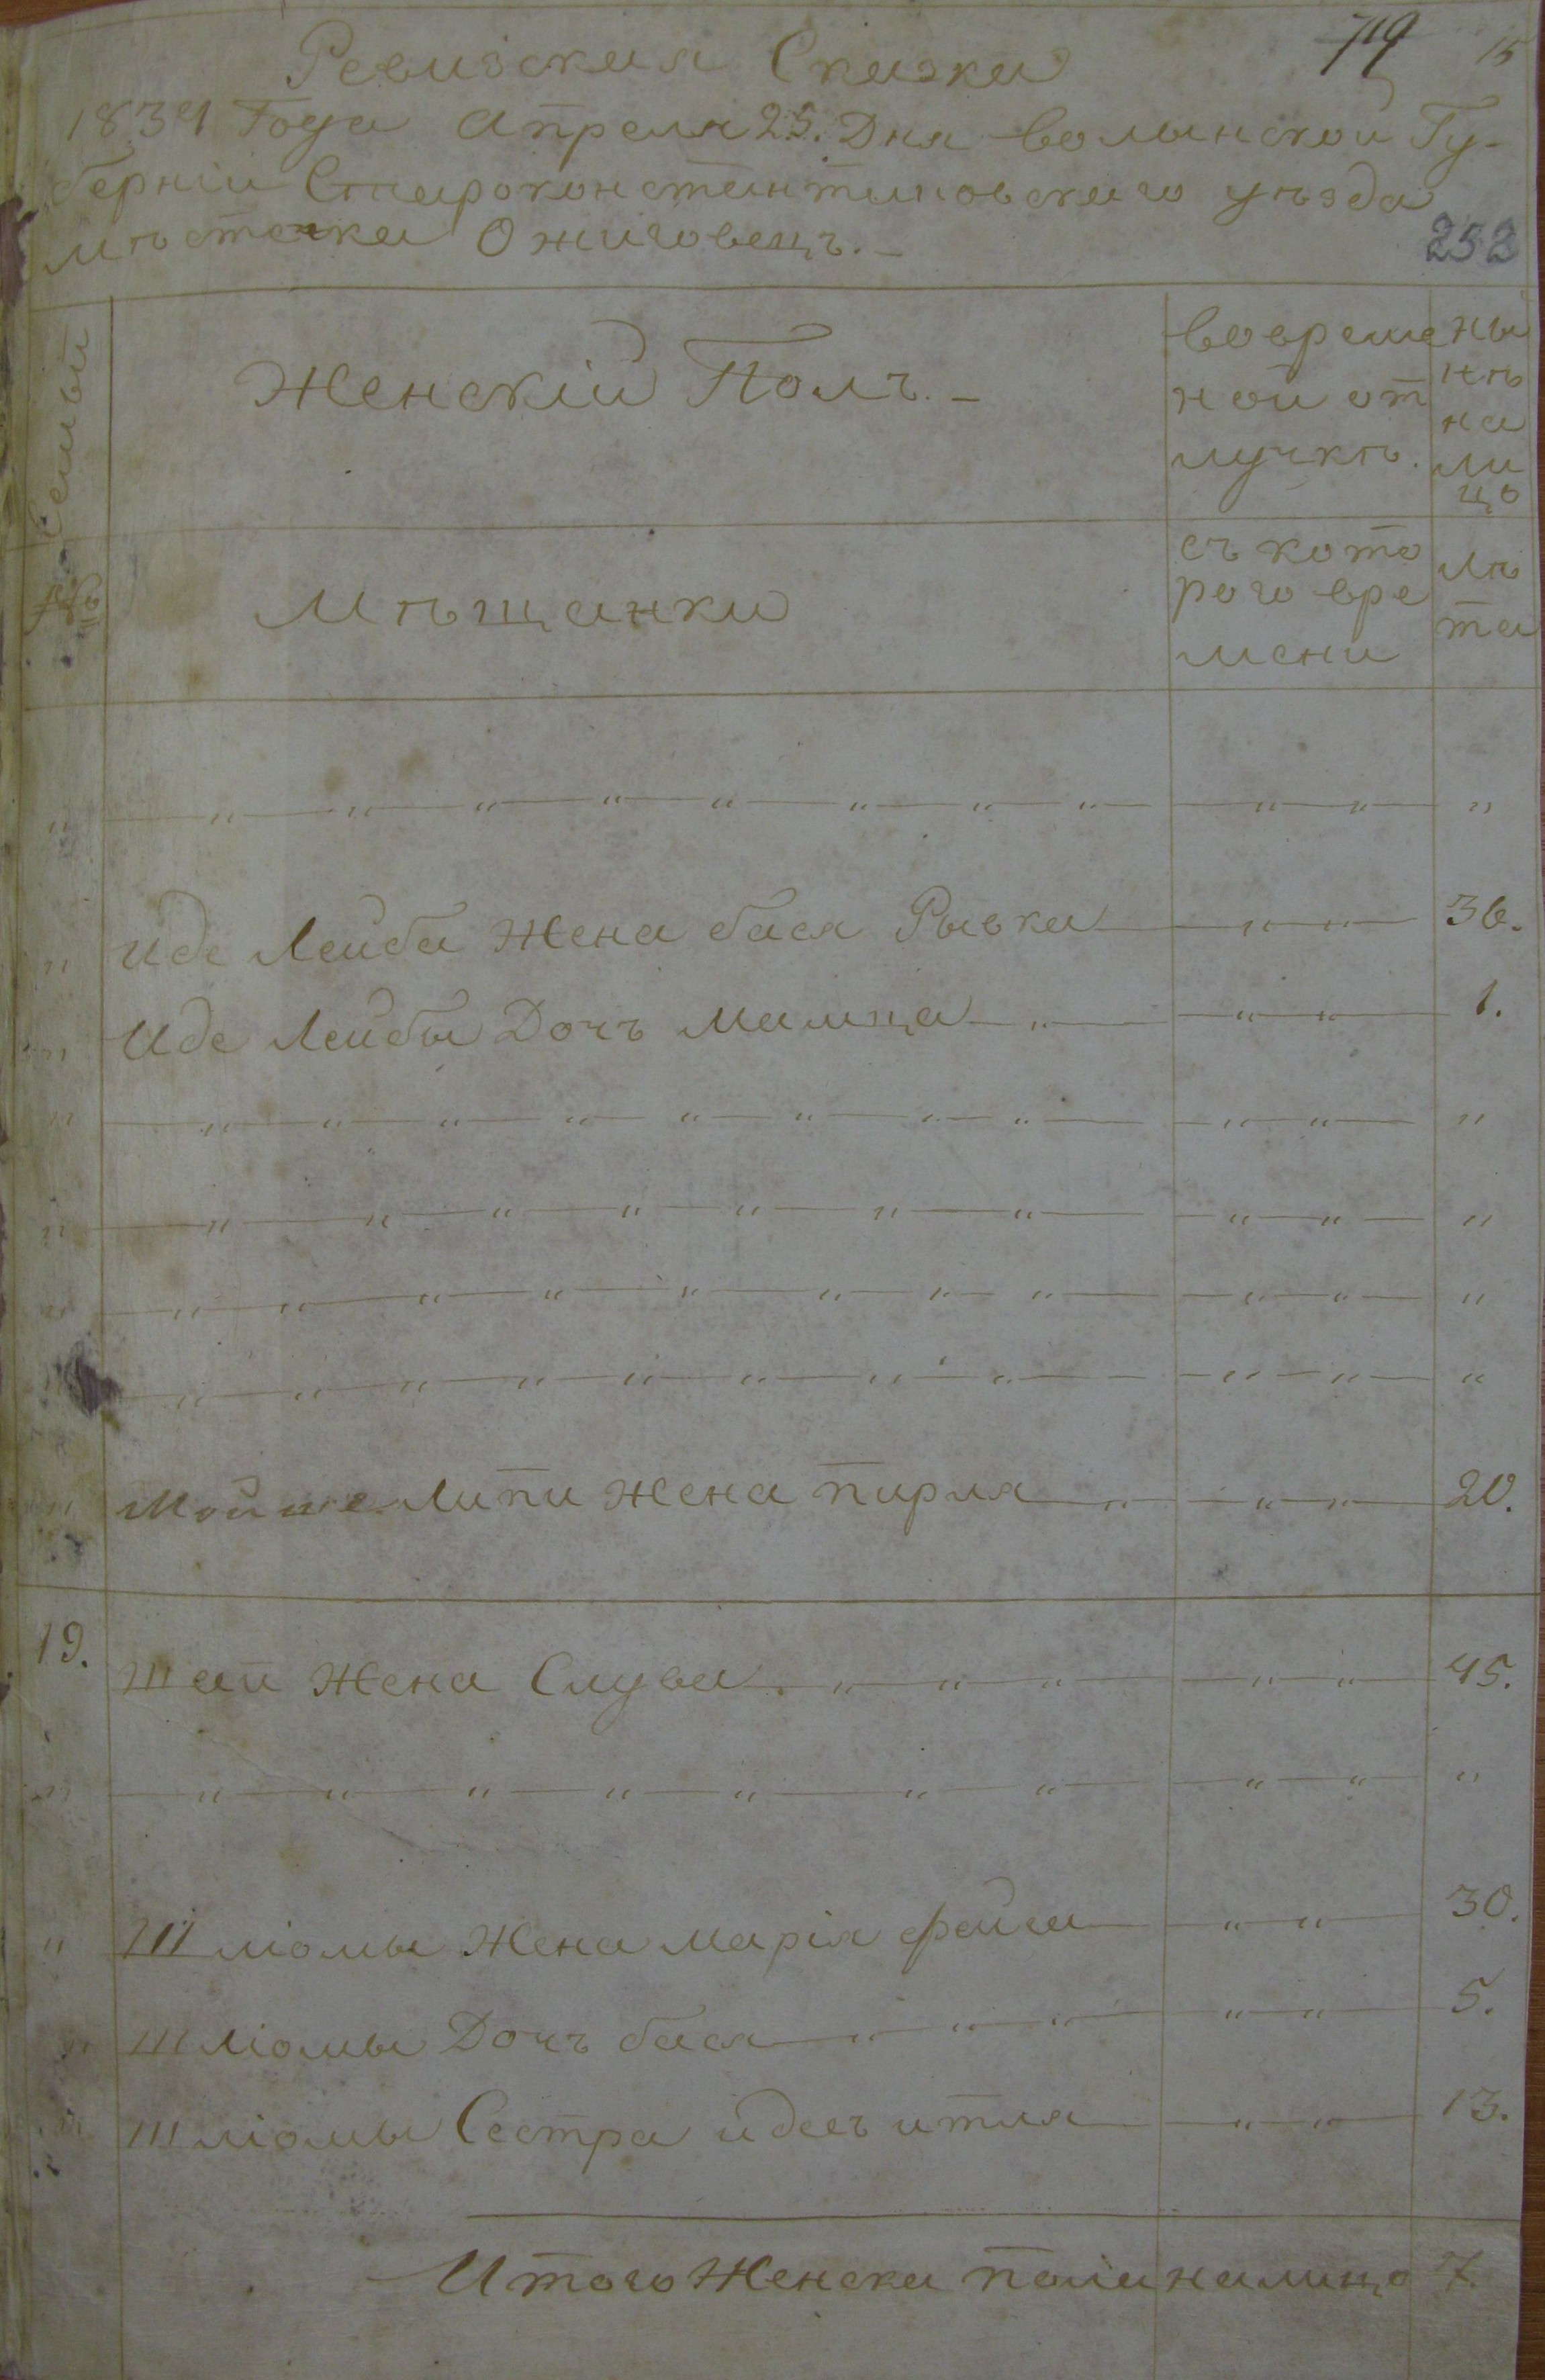 Ревизская Сказка 15
1834 Года Апреля 25. Дня волынской Гу-
берніи Староконстантиновскаго уѣзда
мѣстечка Ожиговецъ.-
252
№ Семьи
Женскій Полъ.-
во времѣ
ной от
лучкѣ.
ны
нѣ
на
ли
цо
Мѣщанки
съ кото
рого вре
мени
лѣ
та
" " " " " " " " " " " "
" Иде Лейба Жена бася Рывка " " 36.
" Иде Лейбы Дочъ Малца " " " 1.
" " " " " " " " " " " "
" " " " " " " " " " "
" " " " " " " " " " " "
" " " " " " " " " " "
" Мойше Липи Жена пирля " " " 20.
19. Шаи Жена Слува " " " " " 45.
" " " " " " " " " " "
" Шліомы Жена марія файга " " 30.
" Шліомы Дочъ бася " " " " " 5.
" Шліомы Сестра идесъ итля " " 13.
Итого Женска пола налицо 7.